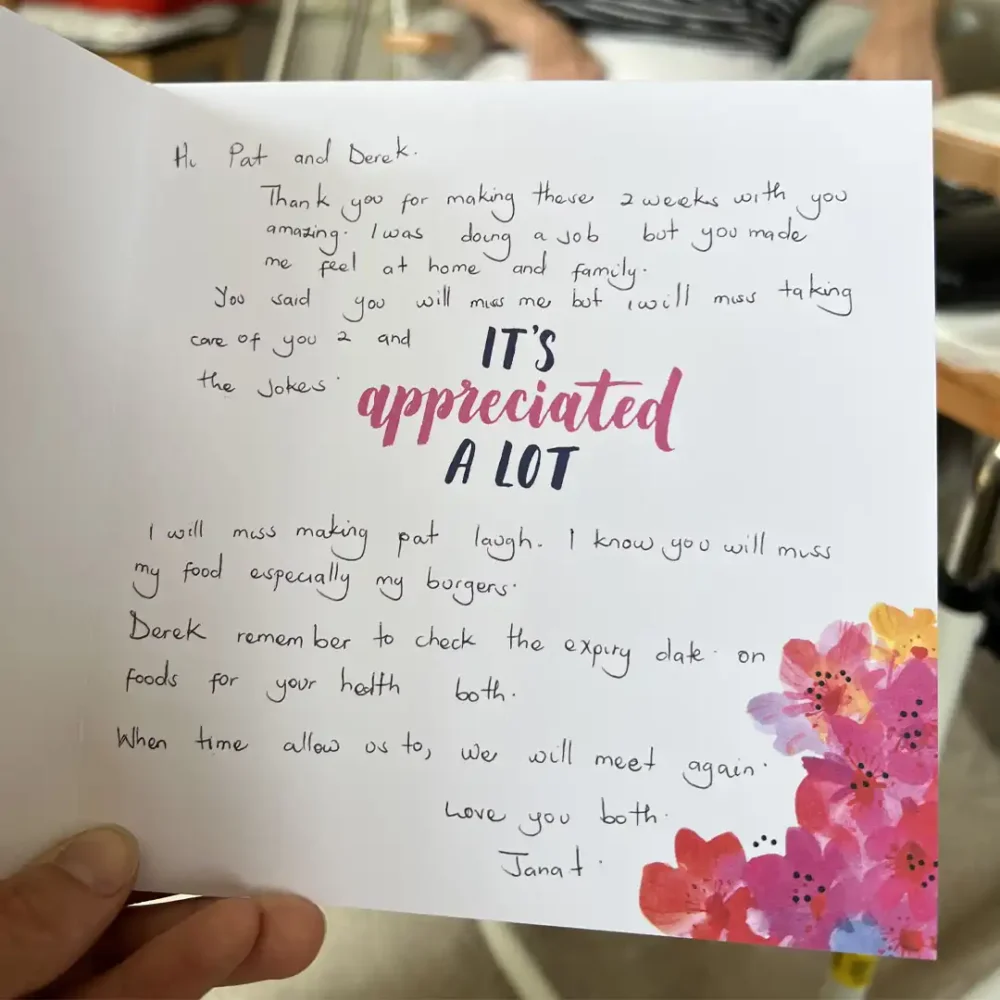 Hi Pat and Derek.
Thank you for making these 2 weeks with you
amazing. I was doing a job but you made
me feel at home and family.
You said you will miss me but i will miss taking
care of you 2 and
the jokes.
IT'S
appreciated
A LOT
I will miss making pat laugh. I know you will miss
my food especially my burgers.
Derek remember to check the expiry date on
foods for your health both.
When time allow us to, we will meet again.
Love you both.
Janat.